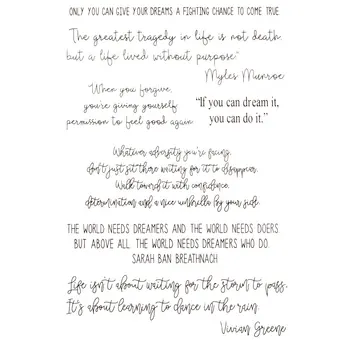 ONLY YOU CAN GIVE YOUR DREAMS A FIGHTING CHANCE TO COME TRUE
The greatest tragedy in life is not death,
but a life lived without purpose."
Myles Munroe
When you forgive,
you're giving yourself
permission to feel good again
"If you can dream it,
you can do it."
Whatever adversity you're facing,
don't just sit there waiting for it to disappear.
Walk toward it with confidence,
determination and a nice umbrella by your side.
THE WORLD NEEDS DREAMERS AND THE WORLD NEEDS DOERS.
BUT ABOVE ALL THE WORLD NEEDS DREAMERS WHO DO.
SARAH BAN BREATHNACH
Life isn't about waiting for the storm to pass.
It's about learning to dance in the rain.
Vivian Greene